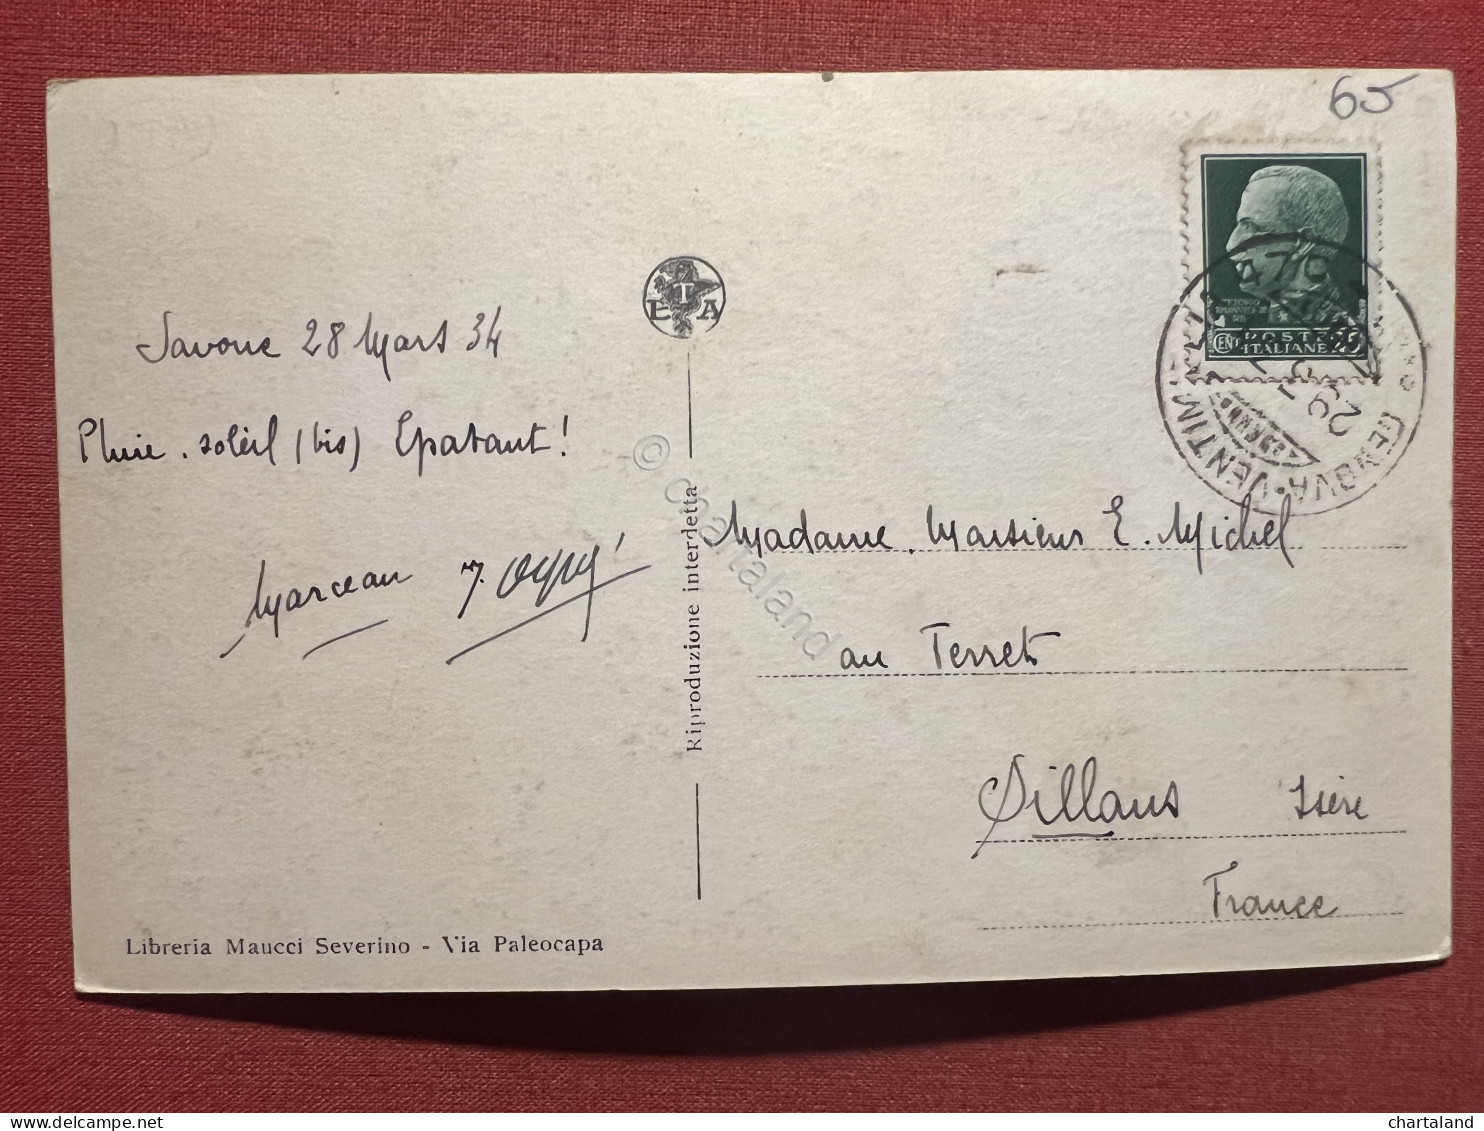 65
ETA
Savone 28 Mars 34
Pluie. soleil (bis) Epatant!
Marceau J.
Riproduzione interdetta
© Chartaland
POSTE
ITALIANE
CENT 25
GENOVA · VENTIM
Madame. Monsieur E. Michel
au Terret
Sillans Isère
France
Libreria Maucci Severino - Via Paleocapa
delcampe.net
chartaland